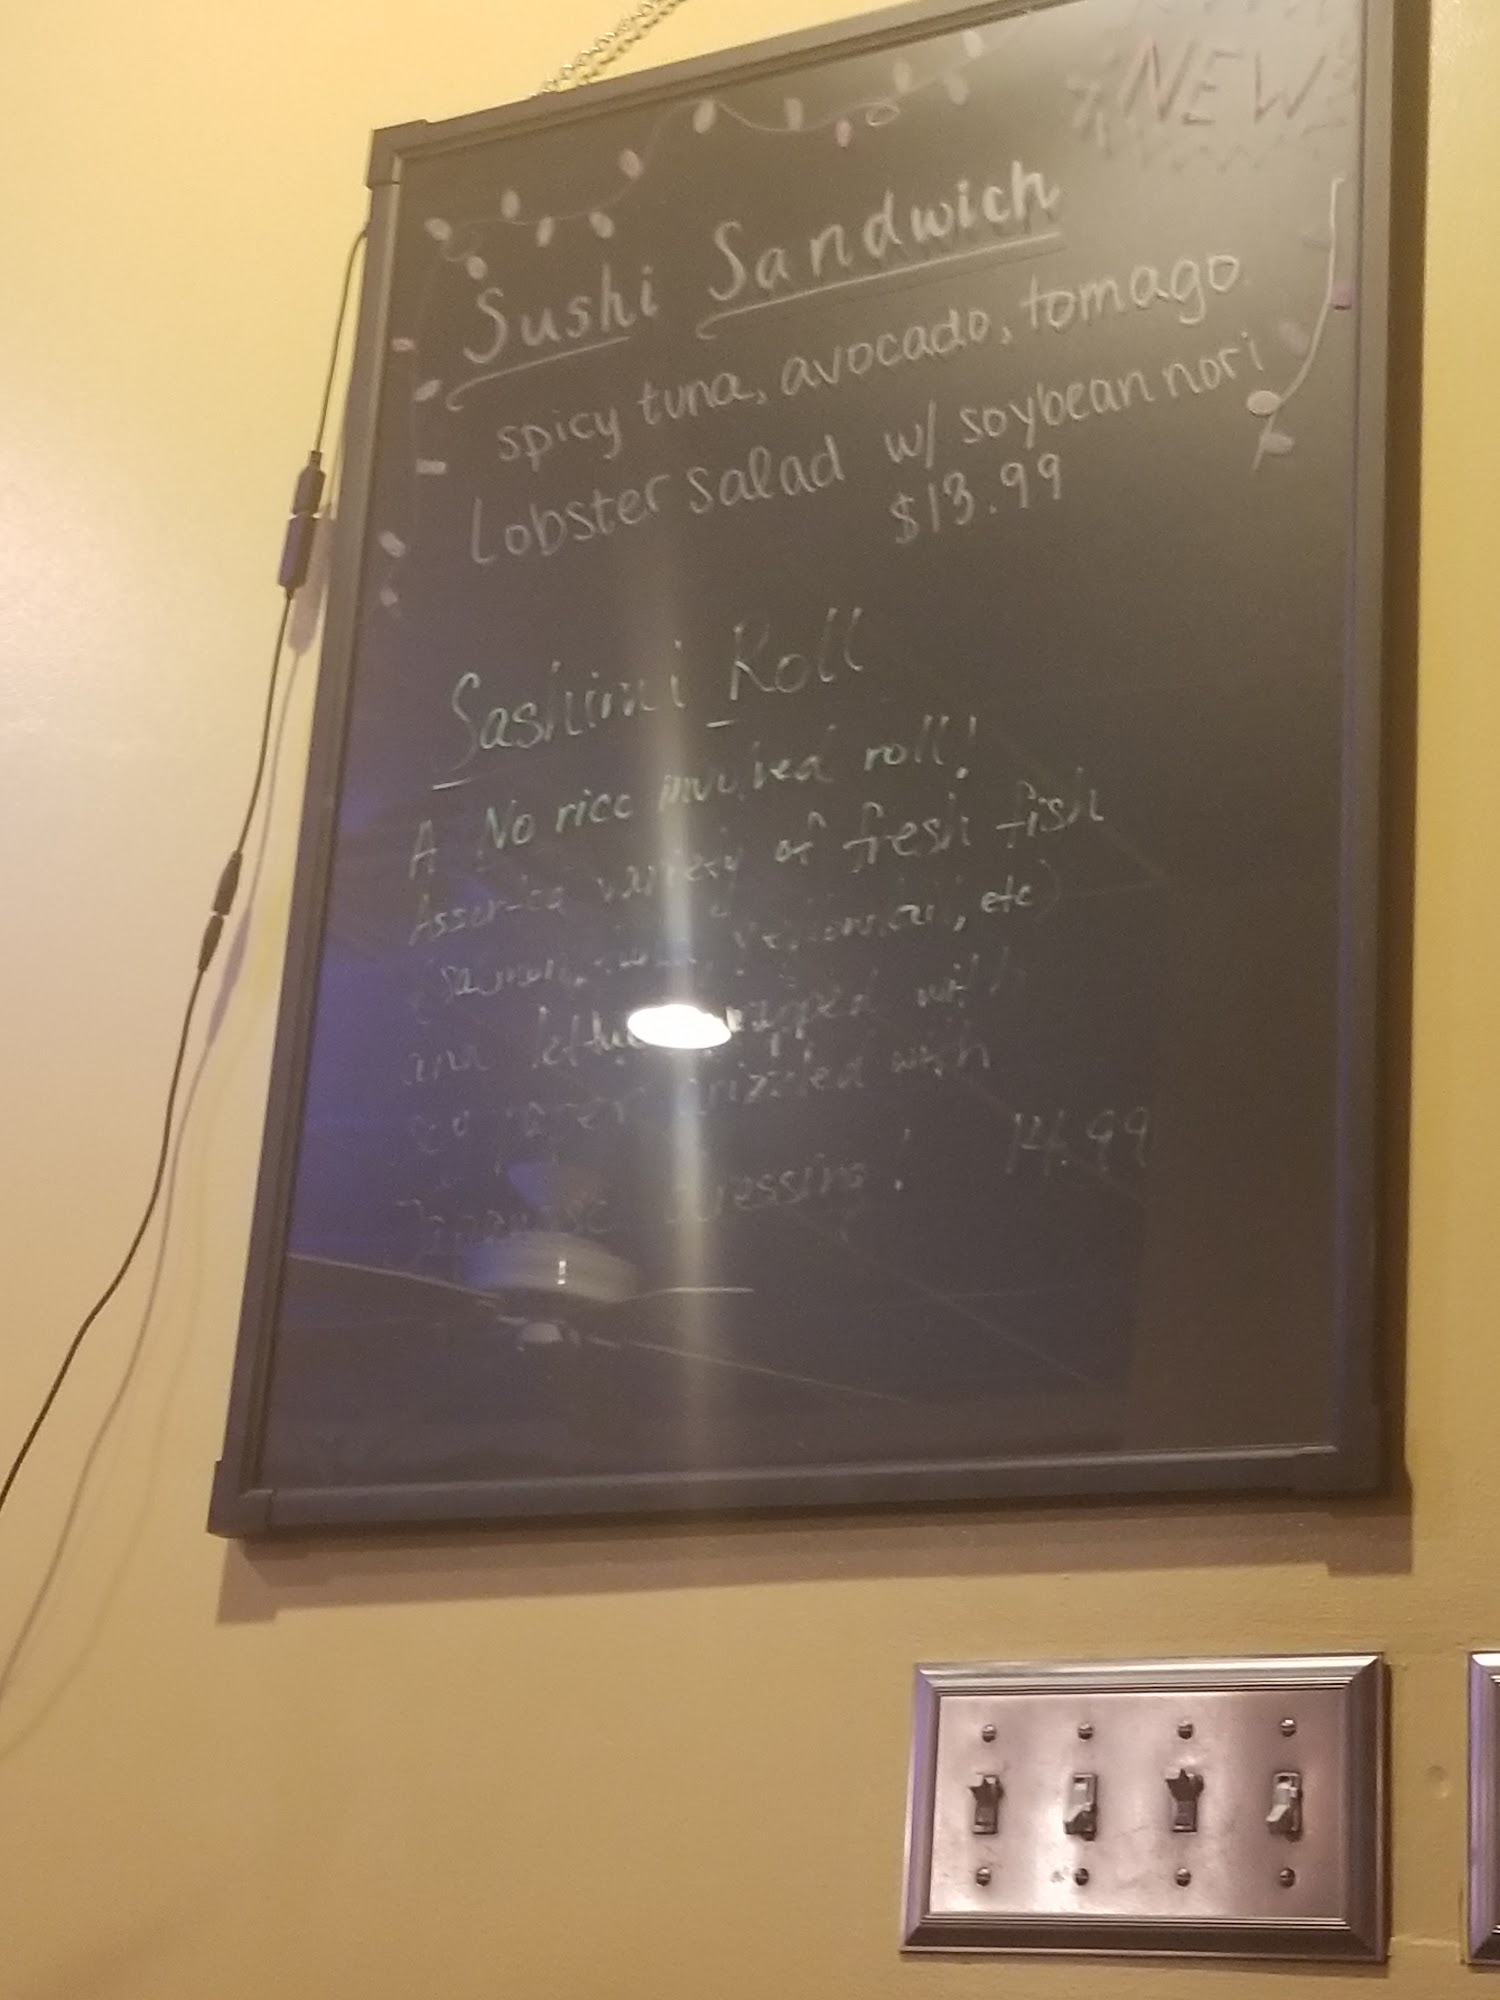 NEW
Sushi Sandwich
spicy tuna, avocado, tomago
Lobster salad w/ soybean nori
$13.99
Sashimi Roll
A No rice involved roll!
Assorted variety of fresh fish
(salmon, tuna, yellowtail, etc)
and lettuce wrapped with
cucumber drizzled with
Japanese dressing! 14.99